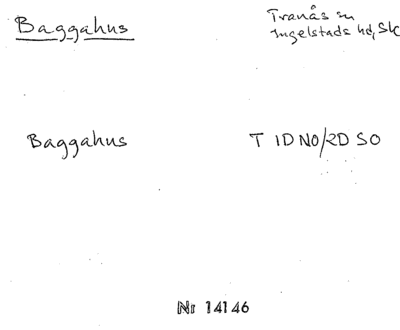 Baggahus
Tranås sn
Ingelstads hd, Sk
Baggahus
T 1D NO/2D SO
Nr 14146